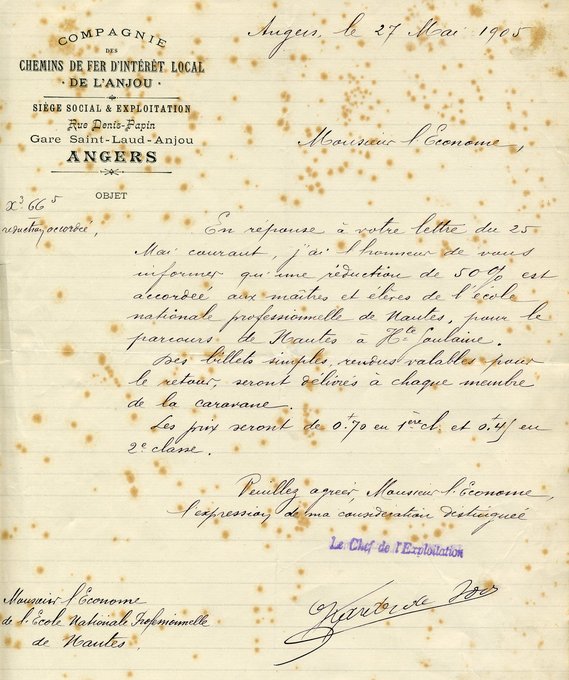 COMPAGNIE
DES
CHEMINS DE FER D'INTÉRÊT LOCAL
· DE L'ANJOU ·
SIÈGE SOCIAL & EXPLOITATION
Rue Denis-Papin
Gare Saint-Laud-Anjou
ANGERS
Angers, le 27 Mai 1905
Monsieur l'Econome,
OBJET
réduction accordée,
En réponse à votre lettre du 25
Mai courant, j'ai l'honneur de vous
informer qu'une réduction de 50% est
accordée aux maîtres et élèves de l'école
nationale professionnelle de Nantes, pour le
parcours de Nantes à Hte Goulaine.
Des billets simples, rendus valables pour
le retour, seront délivrés à chaque membre
de la caravane.
Les prix seront de 0f70 en 1ère cl. et 0f45 en
2e classe.
Veuillez agréer, Monsieur l'Econome,
l'expression de ma considération distinguée
Le Chef de l'Exploitation
Monsieur l'Econome
de l'Ecole Nationale Professionnelle
de Nantes.